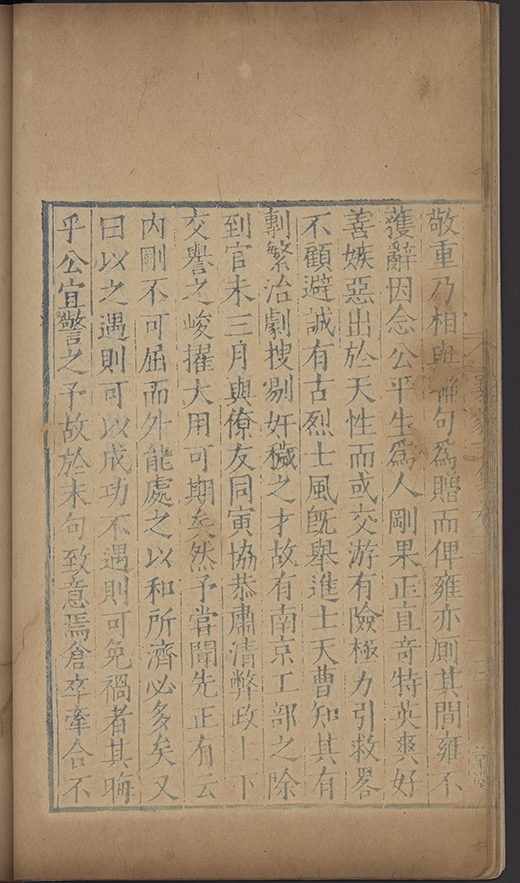 敬重乃相與聯句為贈而俾雍亦厠其間雍不
獲辭因念公平生為人剛果正直竒特英爽好
善嫉惡出於天性而或交游有險極力引救畧
不顧避誠有古烈士風旣舉進士天曹知其有
剸繁治劇搜剔奸穢之才故有南京工部之除
到官未三月與僚友同寅協恭肅清弊政上下
交譽之峻擢大用可期矣然予嘗聞先正有云
內剛不可屈而外能處之以和所濟必多矣又
曰以之遇則可以成功不遇則可免禍者其晦
乎公宜警之予故於末句致意焉倉卒牽合不